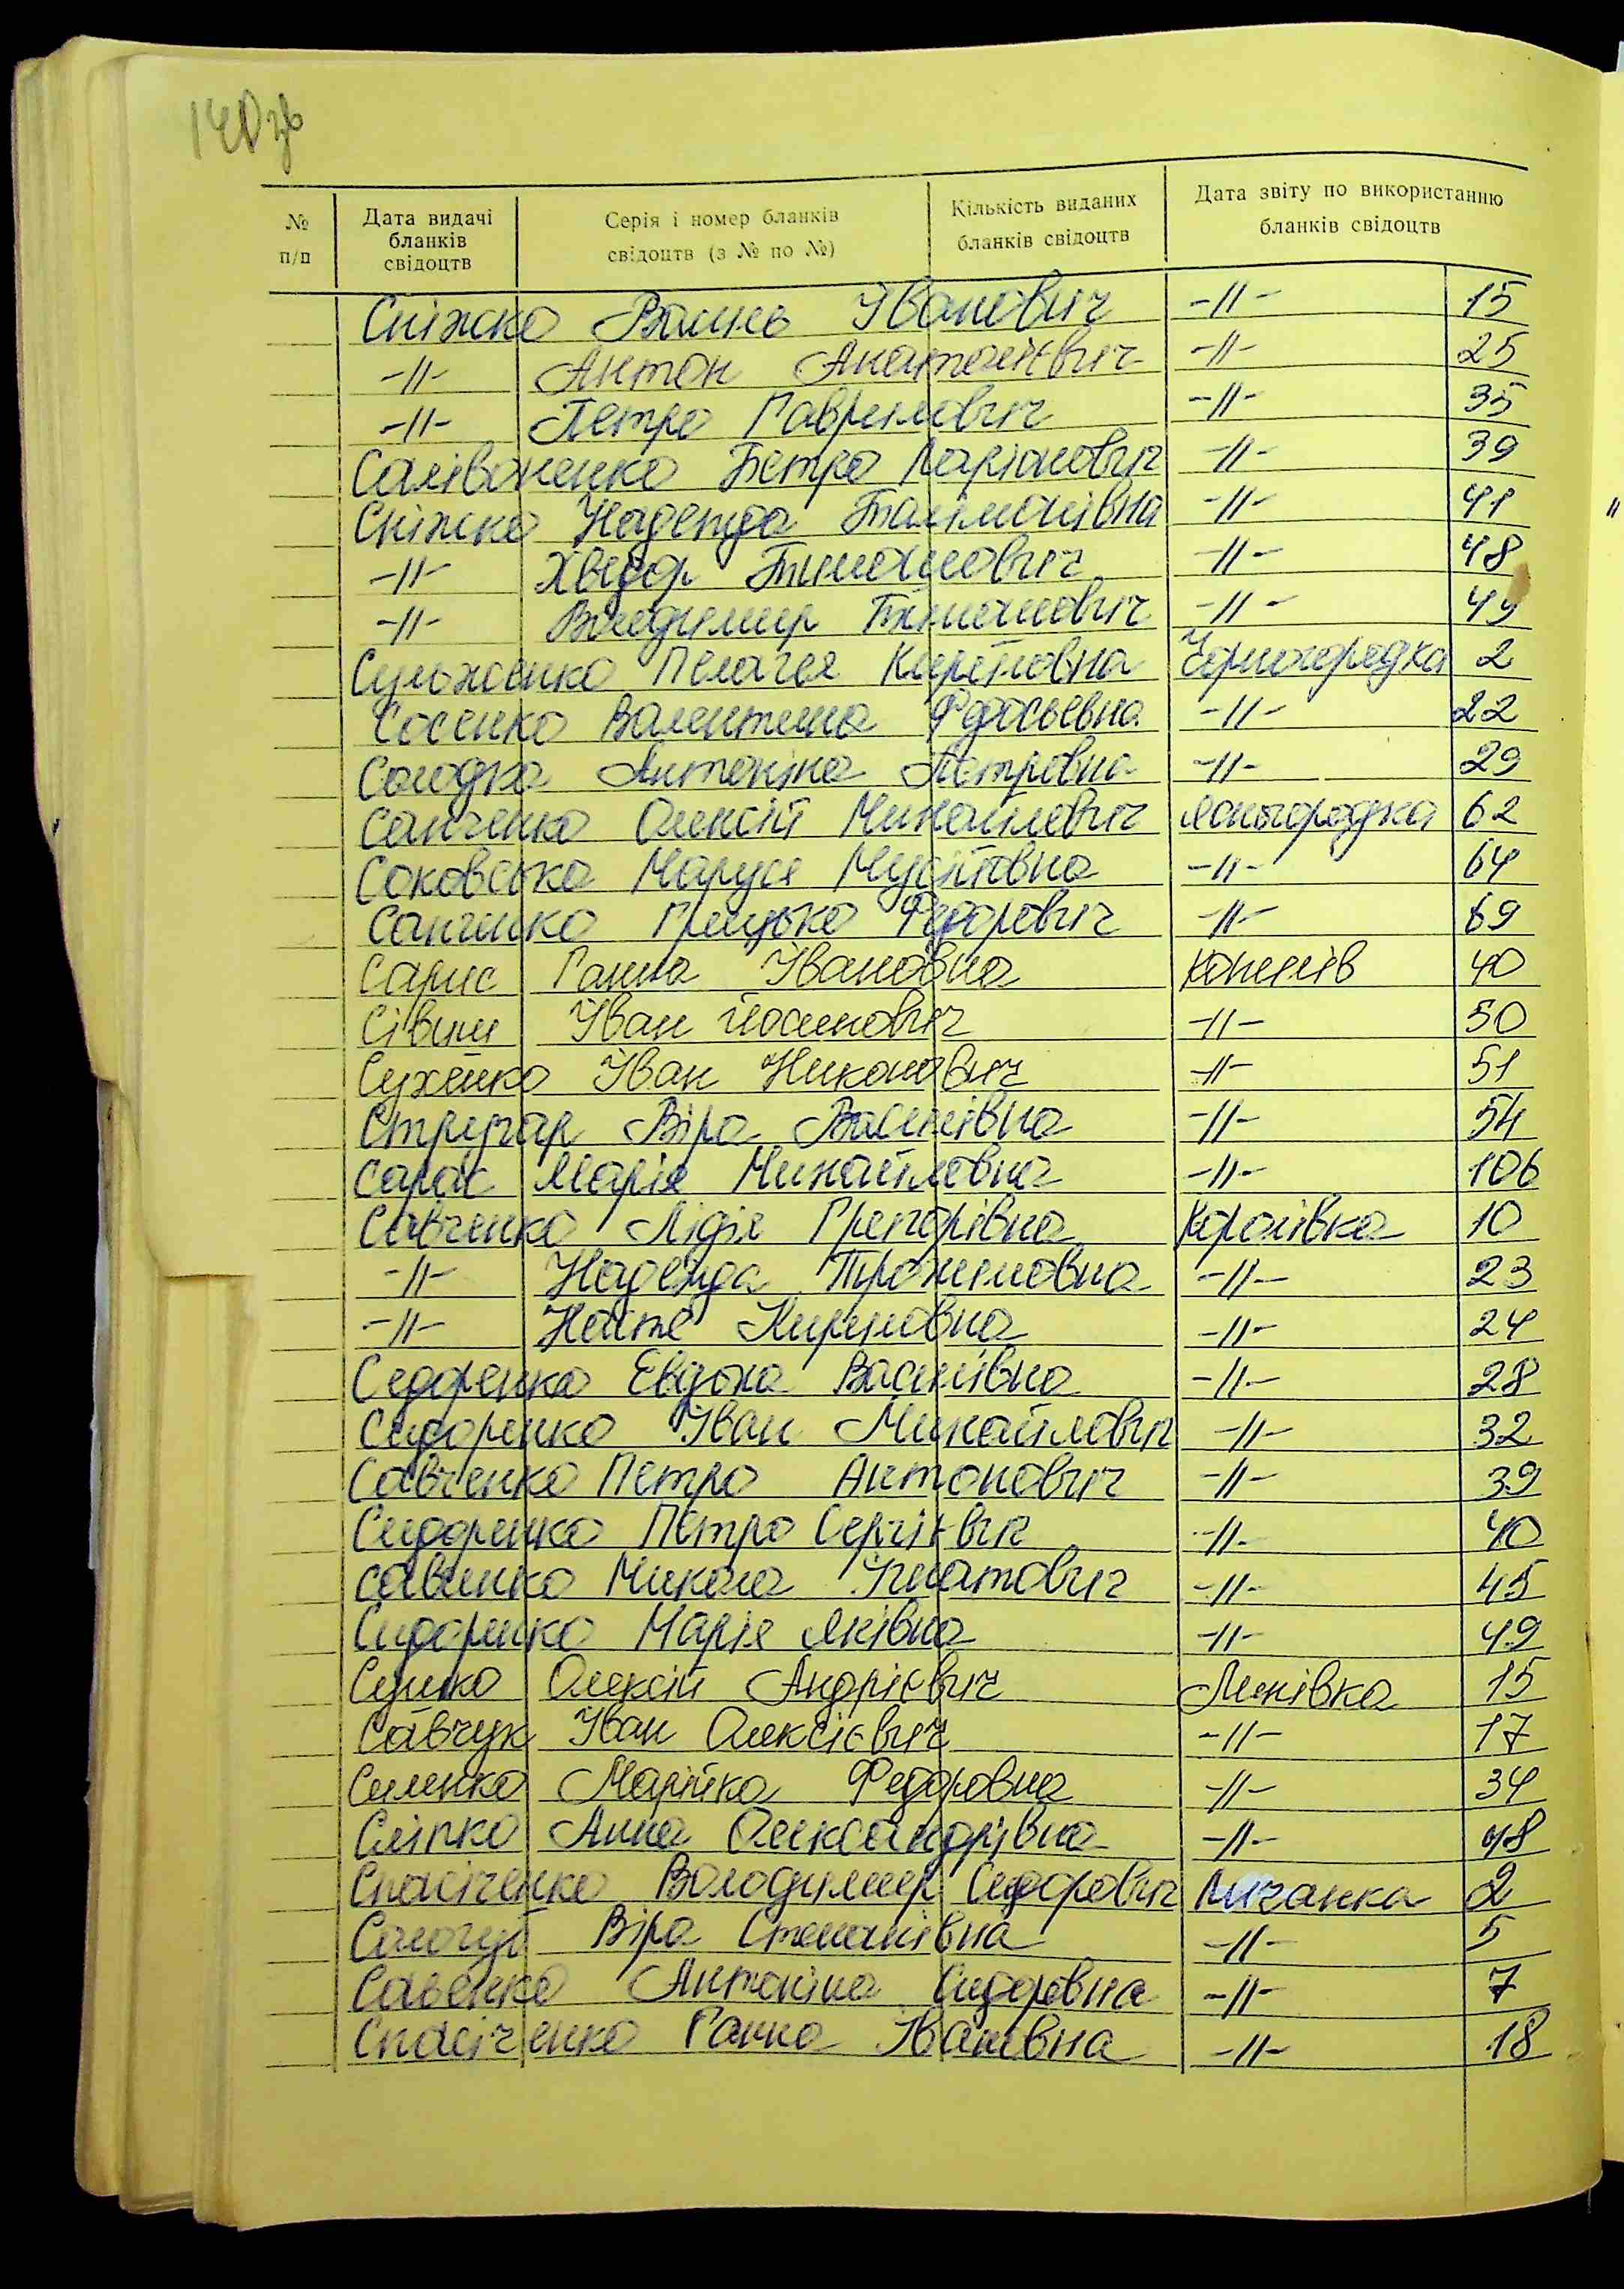 140 зв
№ п/п Дата видачі бланків свідоцтв Серія і номер бланків свідоцтв (з № по №) Кількість виданих бланків свідоцтв Дата звіту по використанню бланків свідоцтв
Сніжко Василь Іванович -//- 15
-//- Антон Анатолієвич -//- 25
-//- Петро Гаврилович -//- 35
Саліваненко Петро Ларіонович -//- 39
Сніжко Надежда -//- 41
-//- Хведор Тимошович -//- 48
-//- Володимир Тимошович -//- 49
Сульженко Пелагея Кирейовна Чорногородка 2
Сосенко Валентина Федосьевна -//- 22
Солодка Антоніна Петровна -//- 29
Санченко Олексій Михайлович Ясногородка 62
Соковська Маруся Мусійовна -//- 64
Санченко Грицько Федорович -//- 69
Сарис Ганна Івановна Копилів 40
Сівиш Іван Йосипович -//- 50
Сухенко Іван Никонович -//- 51
Стругар Віра Василівна -//- 54
Сарас Марія Михайловна -//- 106
Савченко Лідія Григорівна Королівка 10
-//- Надежда Трохимовна -//- 23
-//- Настя Кириловна -//- 24
Седоренко Евдоха Василівна -//- 28
Сидоренко Іван Михайлович -//- 32
Савченко Петро Антонович -//- 39
Сидоренко Петро Сергієвич -//- 40
Савинко Микола Ігнатович -//- 45
Сидоренко Марія Яківна -//- 49
Сушко Олексій Андрієвич Липівка 15
Савчук Іван Олексієвич -//- 17
Силенко Марійка Федоровна -//- 34
Сліпко Анна Олександрівна -//- 48
Спасіченко Володимир Сидорович Мичанка 2
Сологуб Віра Степанівна -//- 5
Савенко Антоніна Сидоровна -//- 7
Спасіченко Ганна Іванівна -//- 18